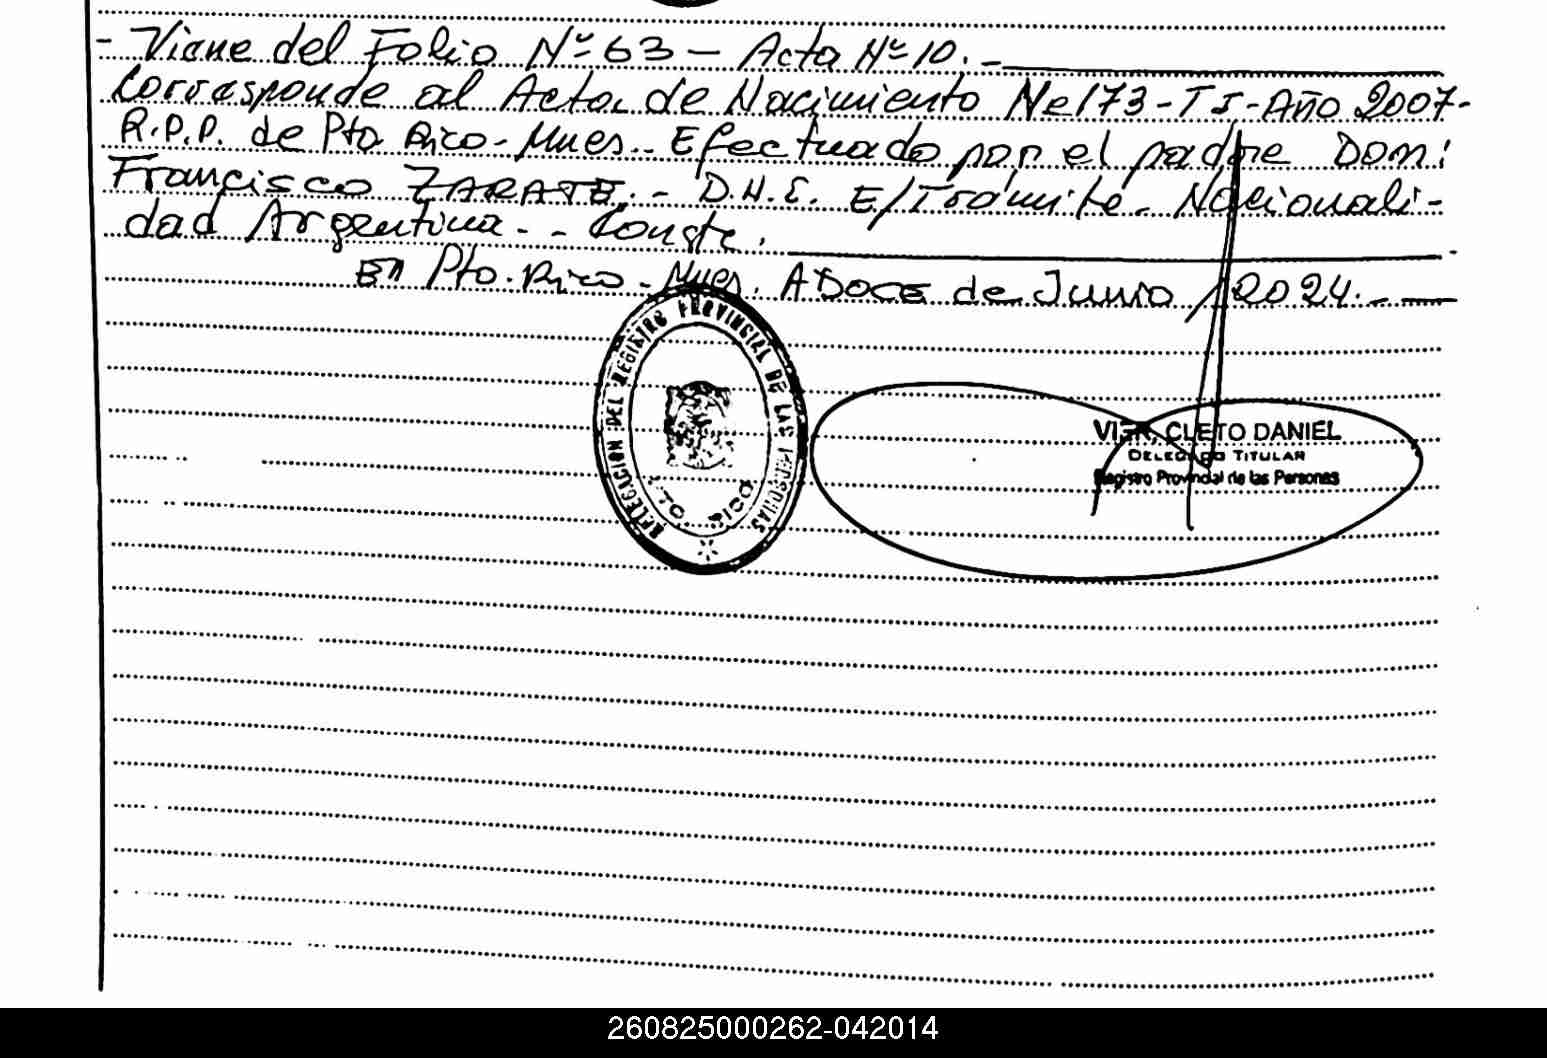 - Viene del Folio Nº 63 – Acta Nº 10. –
Corresponde al Acta de Nacimiento Nº 173 - TI - Año 2007 -
R.P.P. de Pto Rico - Mnes. - Efectuado por el padre Don:
Francisco ZARATE. - D.N.I. E/Trámite. Nacionali-
dad Argentina. - - Conste.
En Pto. Rico - Mnes. A DOCE de Junio / 2024. - —
DELEGACION DEL REGISTRO PROVINCIAL DE LAS PERSONAS
PTO. RICO
VIER, CLETO DANIEL
DELEGADO TITULAR
Registro Provincial de las Personas
260825000262-042014